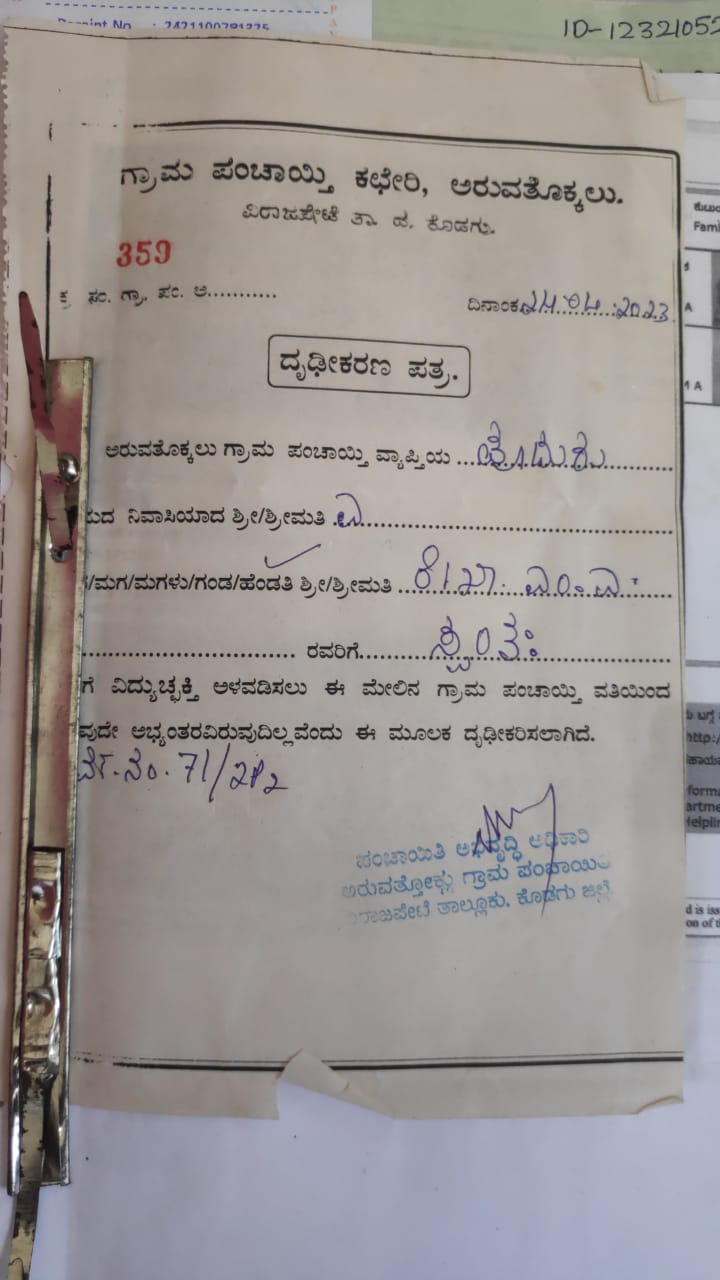 Receipt No. : 2421100791225
ID-12321052
ಗ್ರಾಮ ಪಂಚಾಯ್ತಿ ಕಛೇರಿ, ಅರುವತೊಕ್ಕಲು.
ವಿರಾಜಪೇಟೆ ತಾ. ದ. ಕೊಡಗು.
359
ಕ್ರ ಸಂ. ಗ್ರಾ. ಪಂ. ಅ...........
ದಿನಾಂಕ 24.04.2023
ದೃಢೀಕರಣ ಪತ್ರ.
ಅರುವತೊಕ್ಕಲು ಗ್ರಾಮ ಪಂಚಾಯ್ತಿ ವ್ಯಾಪ್ತಿಯ
ನಿವಾಸಿಯಾದ ಶ್ರೀ/ಶ್ರೀಮತಿ
/ಮಗ/ಮಗಳು/ಗಂಡ/ಹೆಂಡತಿ ಶ್ರೀ/ಶ್ರೀಮತಿ
ರವರಿಗೆ ಸ್ವಂತಃ
ಗೆ ವಿದ್ಯುಚ್ಛಕ್ತಿ ಅಳವಡಿಸಲು ಈ ಮೇಲಿನ ಗ್ರಾಮ ಪಂಚಾಯ್ತಿ ವತಿಯಿಂದ
ವುದೇ ಅಭ್ಯಂತರವಿರುವುದಿಲ್ಲವೆಂದು ಈ ಮೂಲಕ ದೃಢೀಕರಿಸಲಾಗಿದೆ.
ನಂ. 71/2P2
ಪಂಚಾಯಿತಿ ಅಭಿವೃದ್ಧಿ ಅಧಿಕಾರಿ
ಅರುವತ್ತೋಕ್ಲು ಗ್ರಾಮ ಪಂಚಾಯಿತಿ
ರಾಜಪೇಟೆ ತಾಲ್ಲೂಕು. ಕೊಡಗು ಜಿಲ್ಲೆ